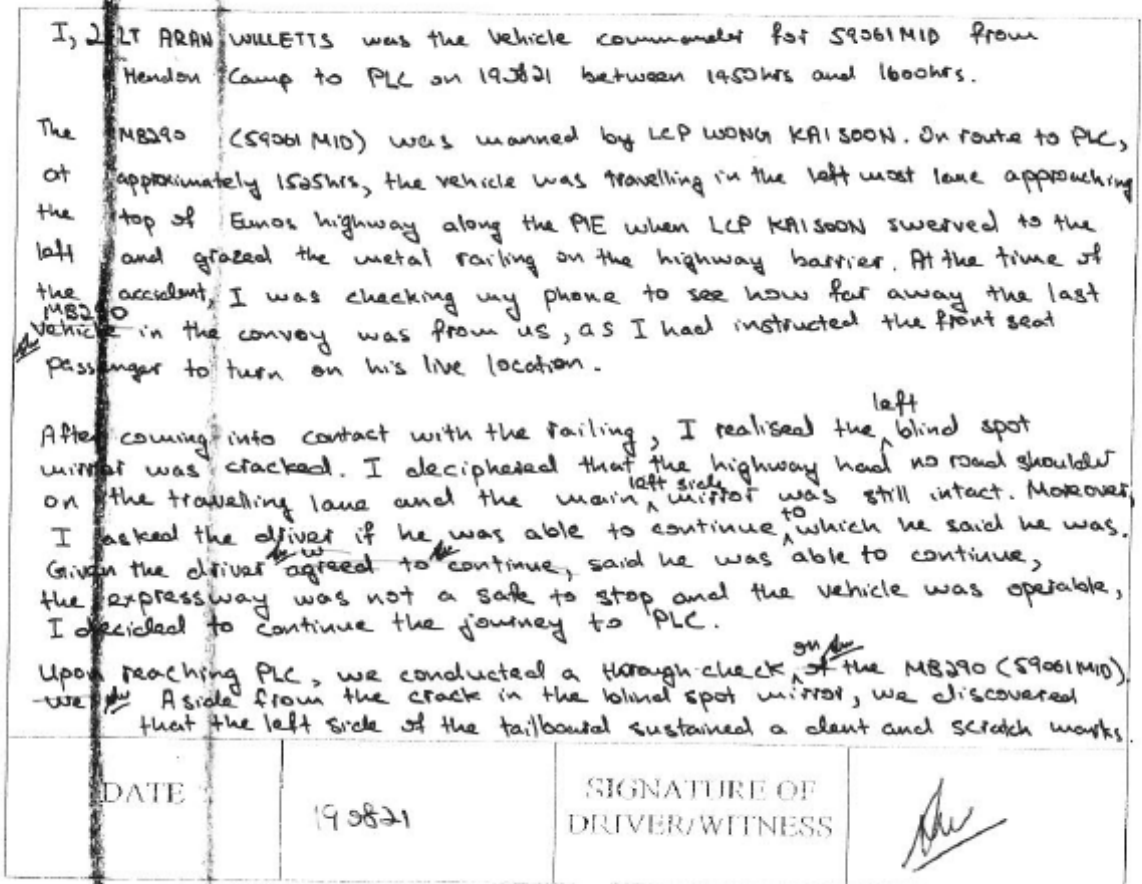 I, 2LT ARAN WILLETTS was the vehicle commander for 59061MID from
Hendon Camp to PLC on 190821 between 1450hrs and 1600hrs.
The MB290 (59061MID) was manned by LCP WONG KAI SOON. On route to PLC,
at approximately 1525hrs, the vehicle was travelling in the left most lane approaching
the top of Eunos highway along the PIE when LCP KAI SOON swerved to the
left and grazed the metal railing on the highway barrier. At the time of
the accident, I was checking my phone to see how far away the last
MB290
vehicle in the convoy was from us, as I had instructed the front seat
passenger to turn on his live location.
left
After coming into contact with the railing, I realised the blind spot
mirror was cracked. I deciphered that the highway had no road shoulder
left side
on the travelling lane and the main mirror was still intact. Moreover,
to
I asked the driver if he was able to continue which he said he was.
Given the driver agreed to continue, said he was able to continue,
the expressway was not a safe to stop and the vehicle was operable,
I decided to continue the journey to PLC.
on
Upon reaching PLC, we conducted a thorough check of the MB290 (59061MID).
we Aside from the crack in the blind spot mirror, we discovered
that the left side of the tailboard sustained a dent and scratch marks.
DATE :
190821
SIGNATURE OF
DRIVER/WITNESS